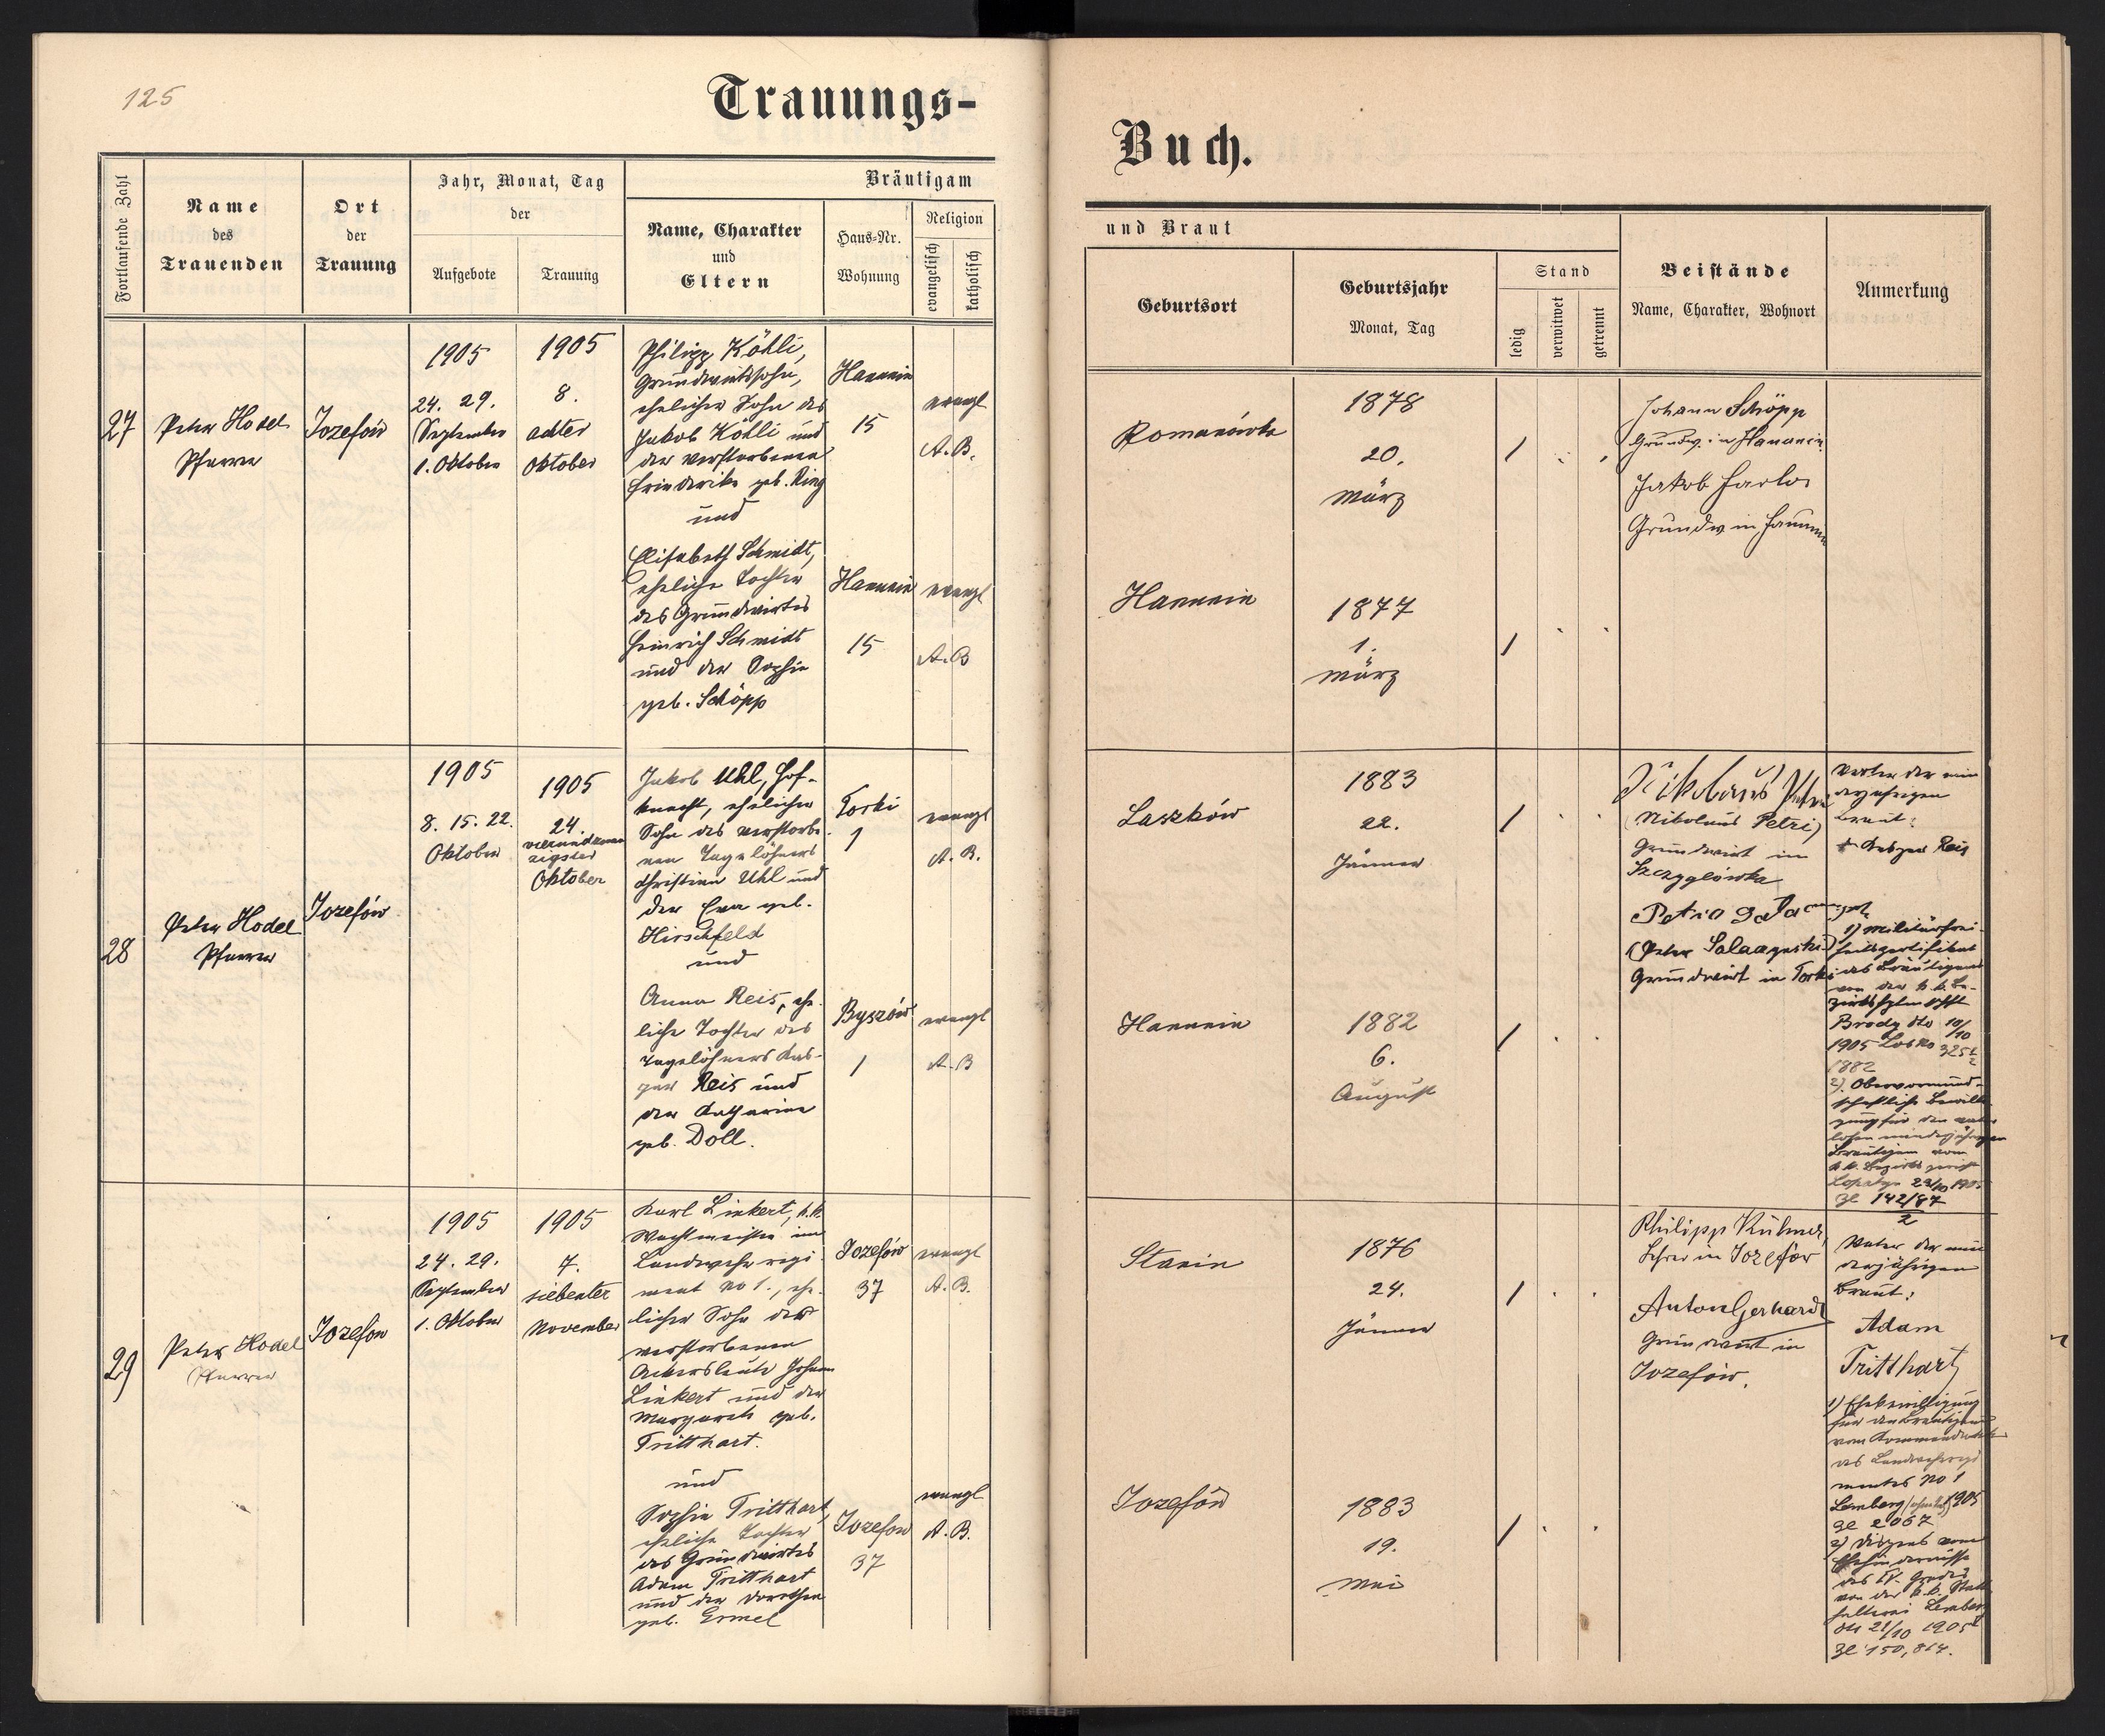 125
Trauungs-
Buch.
Fortlaufende Zahl
Name
des
Trauenden
Ort
der
Trauung
Jahr, Monat, Tag
der
Aufgebote
Trauung
Bräutigam
Name, Charakter
und
Eltern
Haus-Nr.
Wohnung
Religion
evangelisch
katholisch
und Braut
Geburtsort
Geburtsjahr
Monat, Tag
Stand
ledig
verwitwet
getrennt
Beistände
Name, Charakter, Wohnort
Anmerkung
27
Peter Hodel
Pfarrer
Jozefów
1905
24. 29.
September
1. Oktober
1905
8.
achter
Oktober
Philipp Köhli,
Grundwirtssohn,
ehelicher Sohn des
Jakob Köhli und
der verstorbenen
Friederike geb. Ring
und
Elisabeth Schmidt,
eheliche Tochter
des Grundwirtes
Heinrich Schmidt
und der Sophie
geb. Schöpp
Hanunin
15
evangl
A. B.
Hanunin
15
evangl
A. B
Romanówka
1878
20.
März
Johann Schöpp
Grundw. in Hanunin
Jakob
Grundw in Hanunin
Hanunin
1877
1.
März
28
Peter Hodel
Pfarrer
Jozefów
1905
8. 15. 22.
Oktober
1905
24.
vierundzwan
zigster
Oktober
Jakob Uhl, Hof-
knecht, ehelicher
Sohn des verstorbe-
nen Tagelöhners
Christian Uhl und
der Eva geb.
Hirschfeld
und
Anna Reis, ehe-
liche Tochter des
Tagelöhners Kas-
par Reis und
der Katharina
geb. Doll.
Torki
1
evangl
A. B.
Byszów
1
evangl
A. B
Laszków
1883
22.
Jänner
Nikolaus Petri
(Nikolaus Petri)
Grundwirt in
Szczygłówka
Petro
(Peter
Grundwirt in Torki
Vater der min
derjährigen
Braut:
+ Kasper Reis
1) Militärfrei-
heitszertifikat
des Bräutigams
von der k. k. Be-
zirkshptmschft
Brody dto 10/10
1905
1882
2). Obervormund-
schaftliche Bewilli
gung für den vater
losen minderjährigen
Bräutigam vom
k. k. Bezirksgericht
Lopatyn 23/10 1905
Zl 142/87
2
Hanunin
1882
6.
August
29
Peter Hodel
Pfarrer
Jozefow
1905
24. 29.
September
1. Oktober
1905
7.
siebenter
November
Karl Linkert, k. k.
Wachtmeister im
Landwehrregi-
ment No 1., ehe-
licher Sohn der
verstorbenen
Ackersleute Johann
Linkert und der
Margareth geb.
Tritthart.
und
Sophie Tritthart,
eheliche Tochter
des Grundwirtes
Adam Tritthart
und der Dorothea
geb. Ermel
Jozefów
37
evangl
A. B.
Jozefow
37
evangl
A. B.
Stanin
1876
24.
Jänner
Philipp Kühner,
Lehrer in Jozefów
Anton Gerhardt
Grundwirt in
Jozefów.
Vater der min
derjährigen
Braut:
Adam
Tritthart
1) Ehebewilligung
für den Bräutigam
vom Kommando
des Landwehrregi
mentes No 1
Lemberg 1905
Zl 2067
2) Dispens vom
Ehehindernisse
des IV. Grades
von der k. k. Statt
halterei Lemberg
dto 21/10 1905
Zl 150,864.
Jozefów
1883
19.
Mai